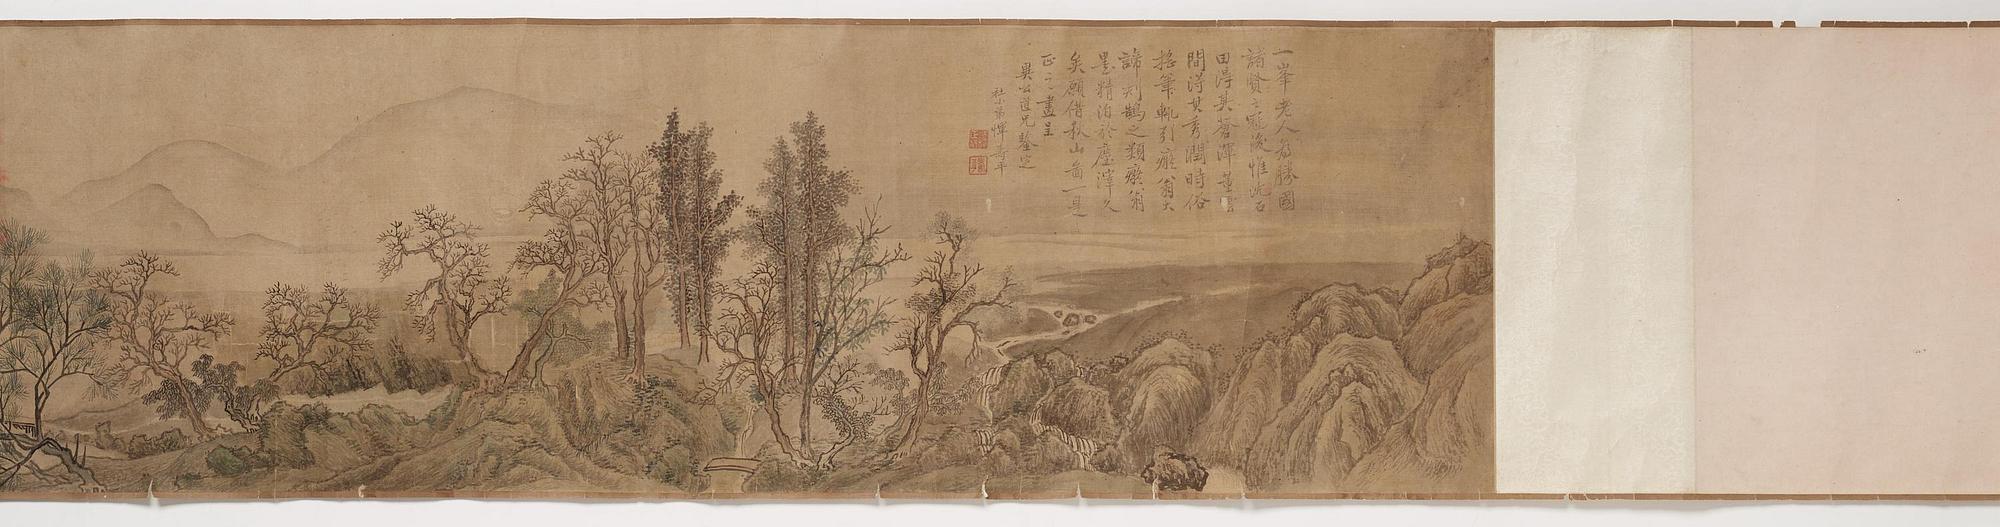 一峯老人為勝國
諸賢之冠後惟沈石
田得其蒼渾董雲
間得其秀潤時俗
搖筆輒引癡翁大
諦刻鵠之類癡翁
墨精汨於塵滓久
矣願借秋山圖一是
正之畫呈
異公道兄鑒定
社弟惲壽平